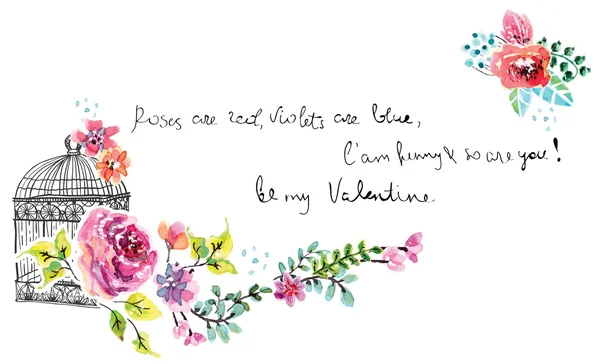 Roses are red, violets are blue,
I'am funny & so are you!
be my Valentine